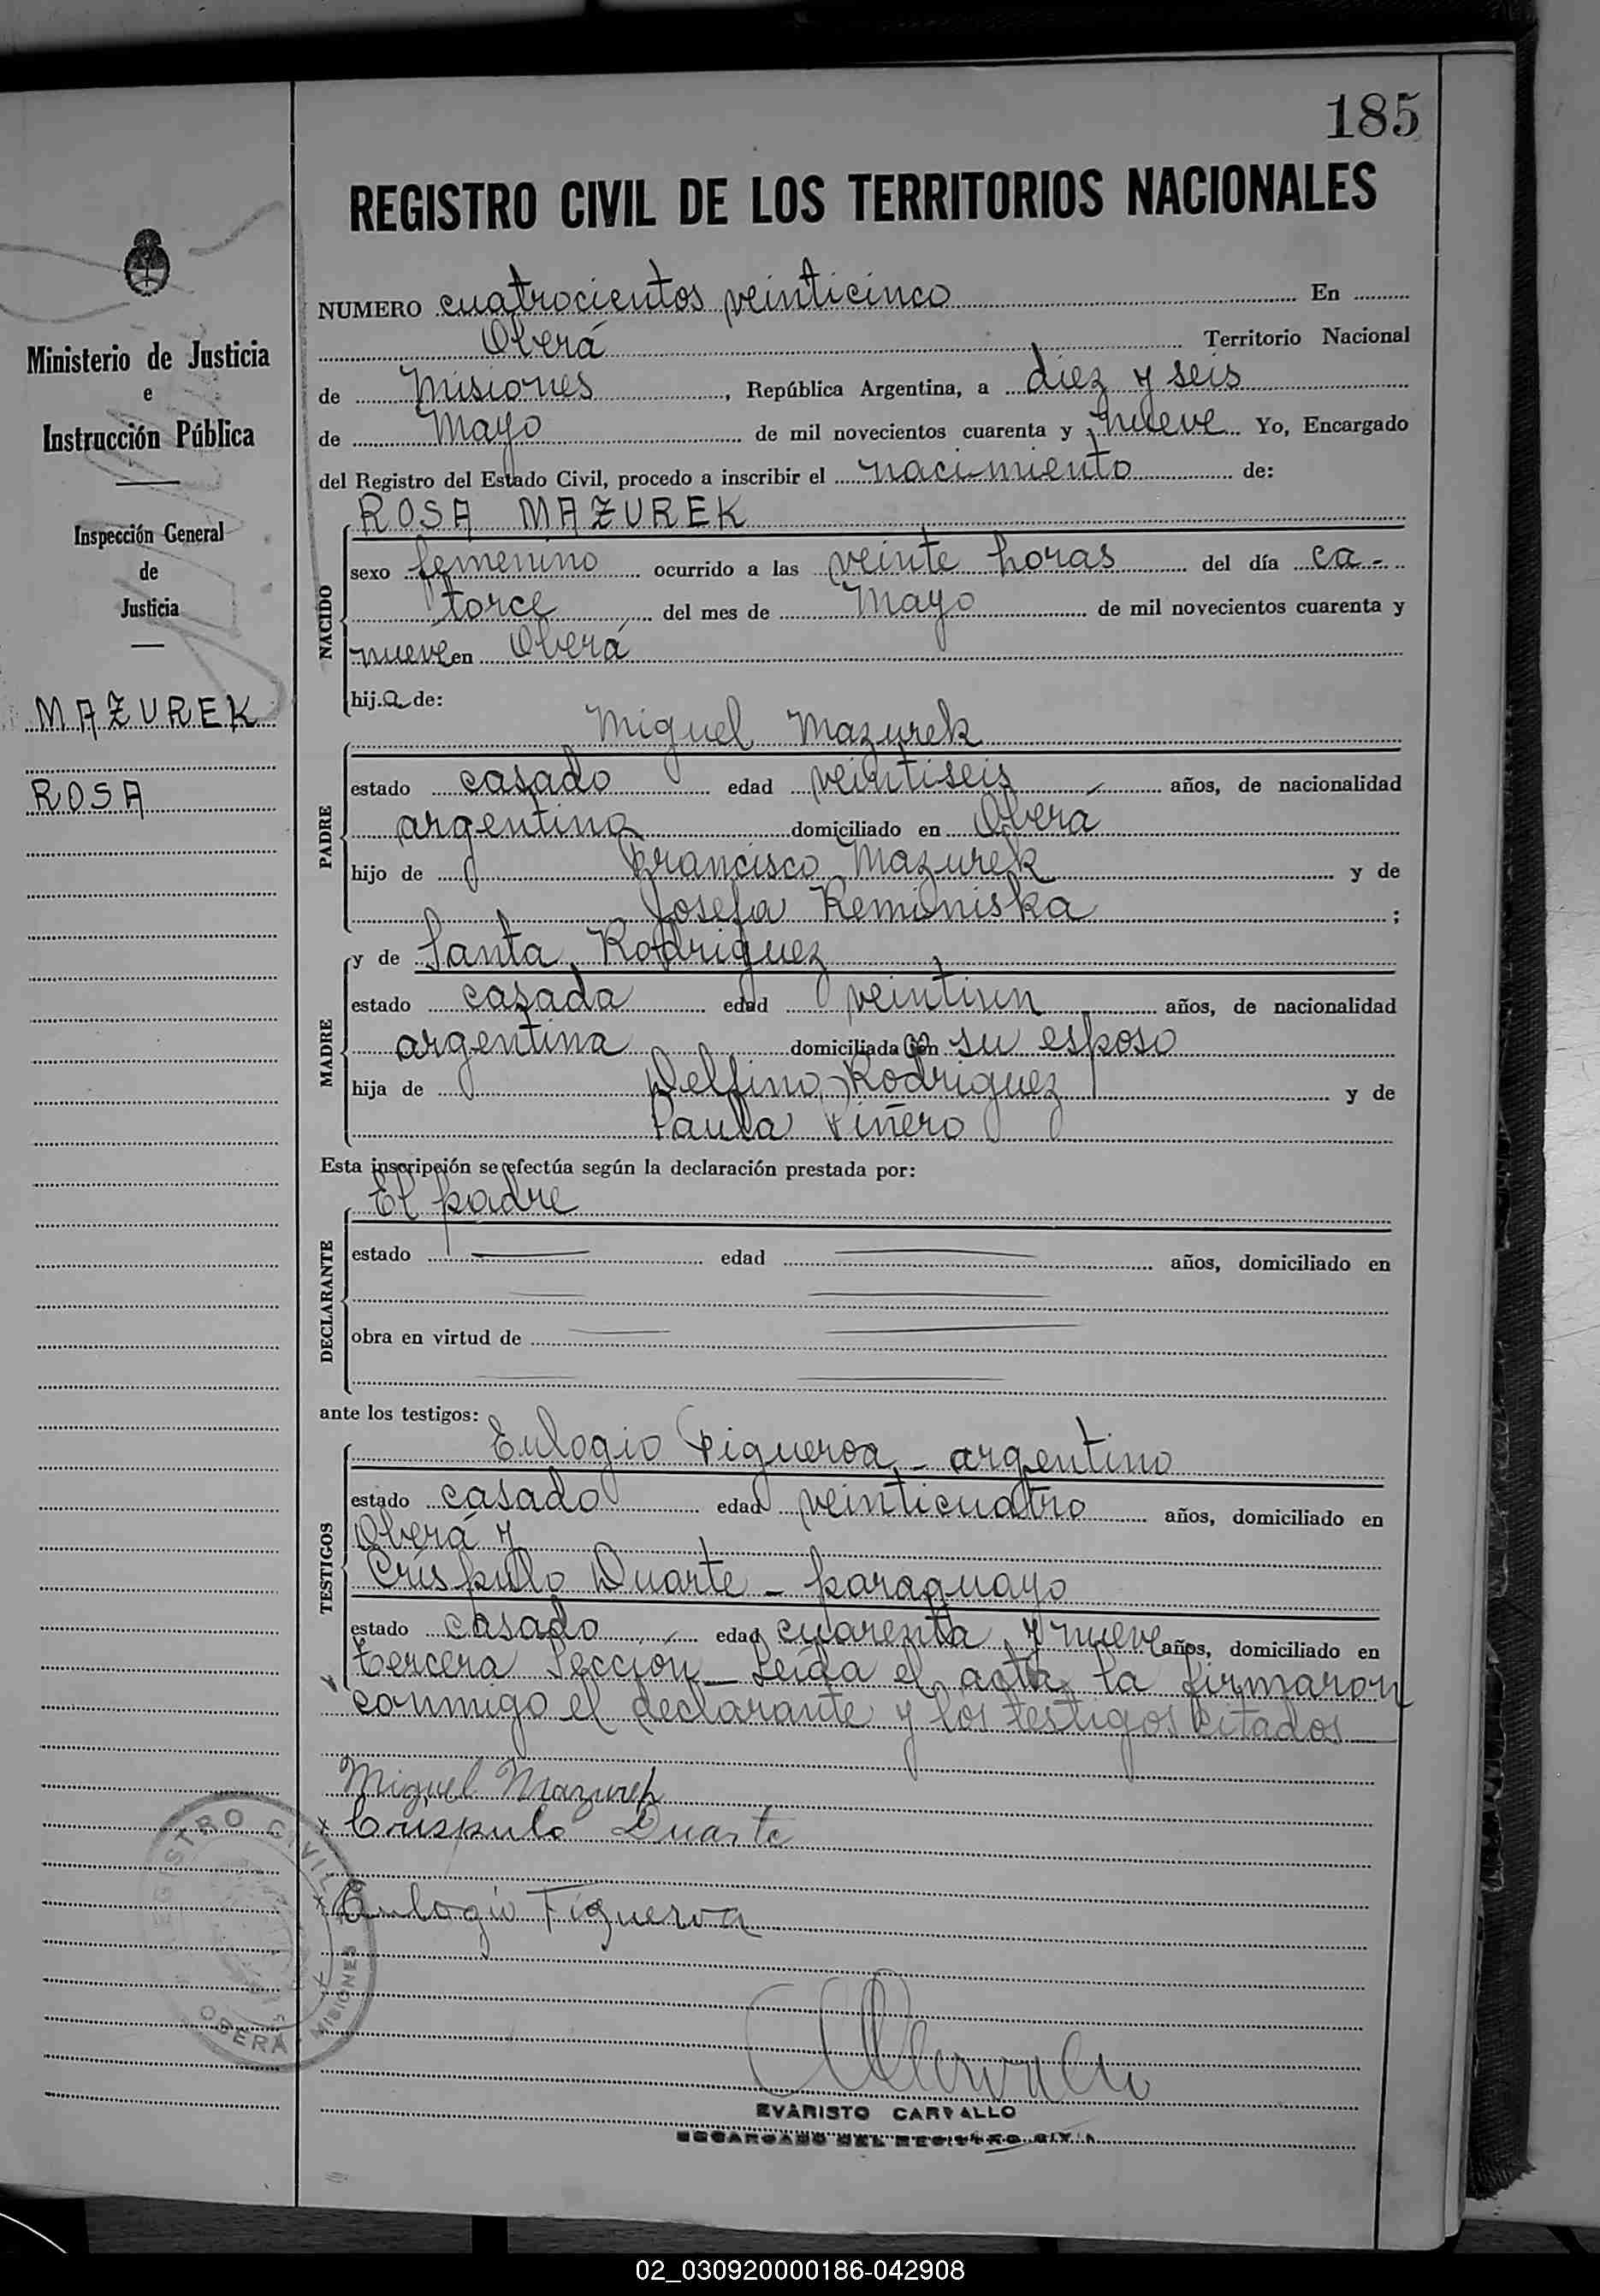 185
REGISTRO CIVIL DE LOS TERRITORIOS NACIONALES
Ministerio de Justicia
e
Instrucción Pública
Inspección General
de
Justicia
MAZUREK
ROSA
NUMERO cuatrocientos veinticinco En
Oberá Territorio Nacional
de Misiones, República Argentina, a diez y seis
de Mayo de mil novecientos cuarenta y nueve Yo, Encargado
del Registro del Estado Civil, procedo a inscribir el nacimiento de:
ROSA MAZUREK
NACIDO
sexo femenino ocurrido a las veinte horas del día ca-
torce del mes de Mayo de mil novecientos cuarenta y
nueve en Oberá
hija de:
Miguel Mazurek
PADRE
estado casado edad veintiseis años, de nacionalidad
argentina domiciliado en Oberá
hijo de Francisco Mazurek y de
Josefa Reminiska;
y de Santa Rodriguez
MADRE
estado casada edad veintiun años, de nacionalidad
argentina domiciliada con su esposo
hija de Delfino Rodriguez y de
Paula Piñero
Esta inscripción se efectúa según la declaración prestada por:
El padre
DECLARANTE
estado edad años, domiciliado en
obra en virtud de
ante los testigos:
Eulogio Figueroa - argentino
TESTIGOS
estado casado edad veinticuatro años, domiciliado en
Oberá y
Críspulo Duarte - paraguayo
estado casado edad cuarenta y nueve años, domiciliado en
tercera Sección - Leída el acta la firmaron
conmigo el declarante y los testigos citados
Miguel Mazurek
Crispulo Duarte
Eulogio Figueroa
REGISTRO CIVIL
OBERÁ MISIONES
EVARISTO CARVALLO
ENCARGADO DEL REGISTRO CIVIL
02_030920000186-042908